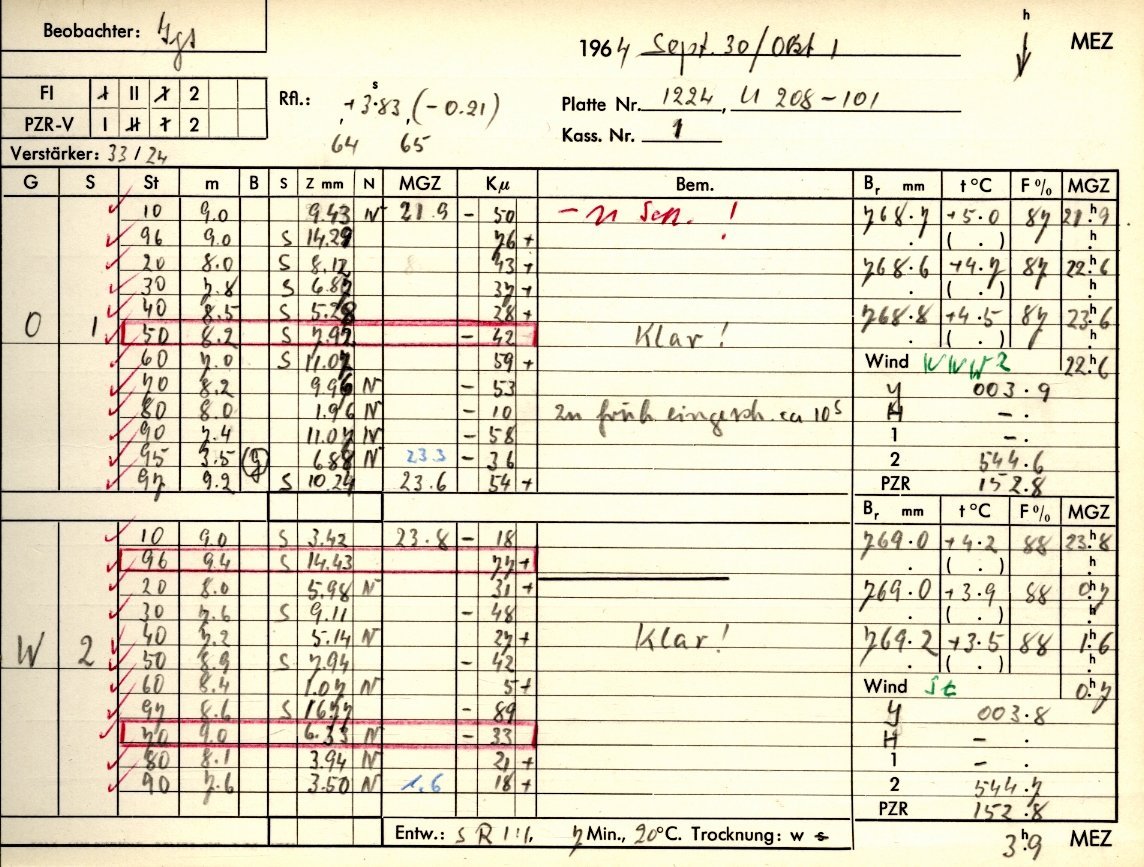 Beobachter:
1964 Sept. 30/Okt 1 h MEZ
FI I II 1 2
PZR-V I II 1 2
Rfl.: +3.83 s, (-0.21)
64 65
Platte Nr. 1224, U 208-101
Kass. Nr. 1
Verstärker: 33/24
G S St m B S Z mm N MGZ Kμ Bem. Br mm t°C F% MGZ
10 9.0 9.43 N 21.9 - 50 768.7 +5.0 87 21h9
96 9.0 S 14.29 76 + . ( . ) h
20 8.0 S 8.12 43 + 768.6 +4.7 87 22h6
30 7.8 S 6.87 37 + . ( . ) h
40 8.5 S 5.28 28 + 768.8 +4.5 87 23h6
O 1 50 8.2 S 7.97 - 42 Klar! . ( . ) h
60 7.0 S 11.07 59 + Wind WNW 2 22h6
70 8.2 9.96 N - 53 y 003.9
80 8.0 1.96 N - 10 zu früh eingesch. ca 10s H - .
90 7.4 11.07 N - 58 1 - .
95 3.5 (g) 6.88 N 23.3 - 36 2 544.6
97 9.2 S 10.24 23.6 54 + PZR 152.8
Br mm t°C F% MGZ
10 9.0 S 3.42 23.8 - 18 769.0 +4.2 88 23h8
96 9.4 S 14.43 77 + . ( . ) h
20 8.0 5.98 N 31 + 769.0 +3.9 88 0h7
30 7.6 S 9.11 - 48 . ( . ) h
W 2 40 7.2 5.14 N 27 + Klar! 769.2 +3.5 88 1h6
50 8.9 S 7.94 - 42 . ( . ) h
60 8.4 1.07 N 5 + Wind St 0h7
97 8.6 S 16.77 - 89 y 003.8
70 9.0 6.33 N - 33 H - .
80 8.1 3.94 N 21 + 1 - .
90 7.6 3.50 N 1.6 18 + 2 544.7
PZR 152.8
Entw.: S R 1:1, 7 Min., 20°C. Trocknung: w s 3h9 MEZ